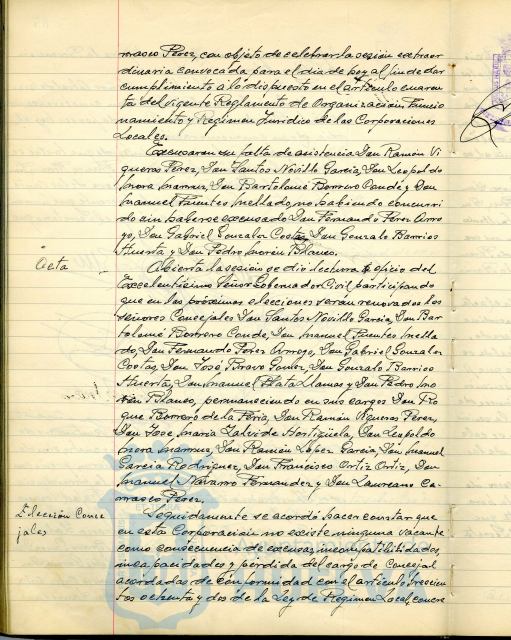 rrasco Pérez, con objeto de celebrar la sesión extraor
dinaria convocada para el día de hoy al fin de dar
cumplimiento a lo dispuesto en el artículo cuaren
ta del vigente Reglamento de Organización, Funcio
namiento y Régimen Jurídico de las Corporaciones
Locales.
Excusaron su falta de asistencia Don Ramón Vi
gueras Pérez, Don Santos Novillo García, Don Leopoldo
Mora Marmz, Don Bartolomé Borrero Conde y Don
Manuel Fuentes Mellado, no habiendo concurri
do sin haberse excusado Don Fernando Pérez Arro
yo, Don Gabriel González Costas, Don Gonzalo Barrios
Huerta y Don Pedro Morón Blanco.
Acta
Abierta la sesión se dio lectura oficio del
Excelentísimo Señor Gobernador Civil participando
que en las próximas elecciones serán renovados los
señores Concejales Don Santos Novillo García, Don Bar
tolomé Borrero Conde, Don Manuel Fuentes Mella
do, Don Fernando Pérez Arroyo, Don Gabriel González
Costas, Don José Bravo Gómez, Don Gonzalo Barrios
Huerta, Don Manuel Plata Llamas y Don Pedro Mo
rón Blanco, permaneciendo en sus cargos Don Ro
que Borrero de la Feria, Don Ramón Vigueras Pérez,
Don José María Zalvide Hortigüela, Don Leopoldo
Mora Marmz, Don Ramón López García, Don Manuel
García Rodríguez, Don Francisco Ortiz Ortiz, Don
Manuel Navarro Fernández y Don Laureano Ca-
rrasco Pérez.
Elección Conce
jales
Seguidamente se acordó hacer constar que
en esta Corporación no existe ninguna vacante
como consecuencia de excusas, incompatibilidades,
incapacidades y pérdida del cargo de Concejal
acordadas de conformidad con el artículo trescien
tos ochenta y dos de la Ley de Régimen Local, concre